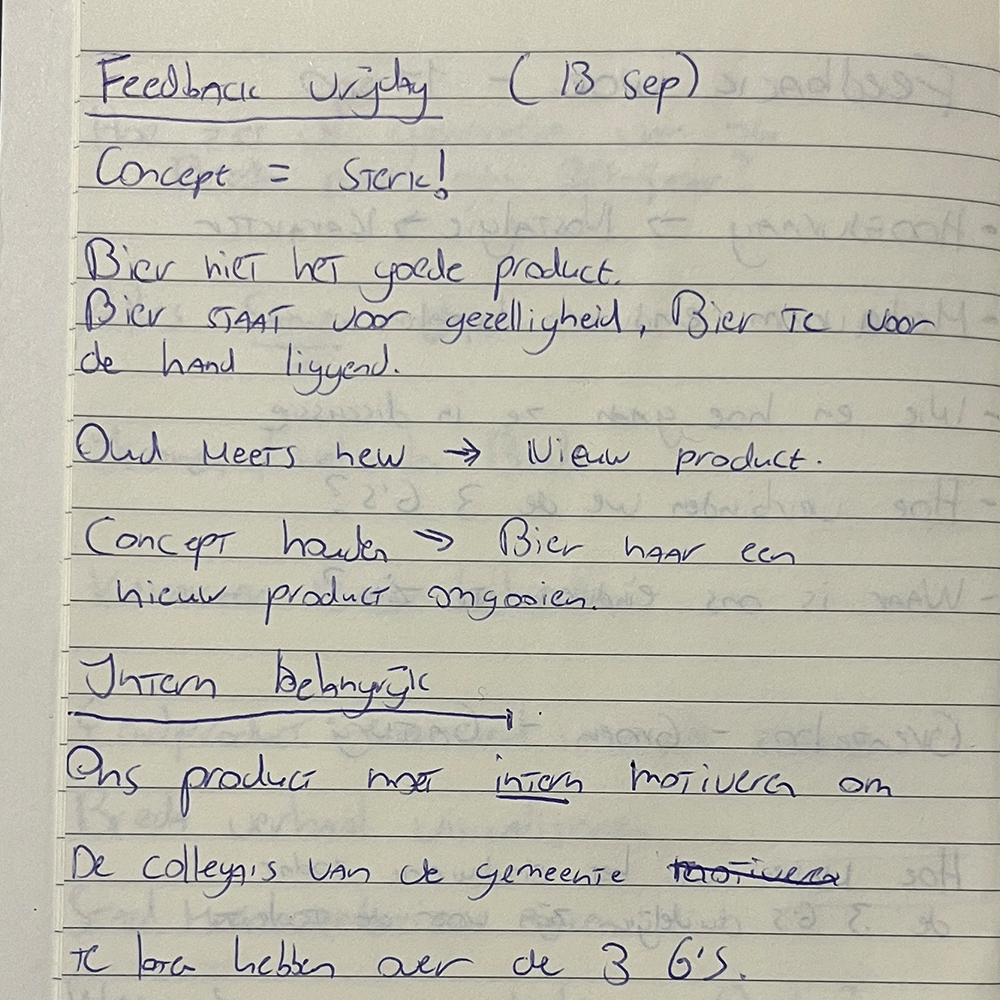 Feedback Vrijdag (13 sep)
Concept = Sterk!
Bier niet het goede product.
Bier STAAT voor gezelligheid, Bier te voor
de hand liggend.
Oud Meets new → Nieuw product.
Concept houden ⇒ Bier naar een
nieuw product omgooien.
Intern Belangrijk
Ons product moet intern motiveren om
De collega's van de gemeente motiveren
te laten hebben over de 3 G'S.